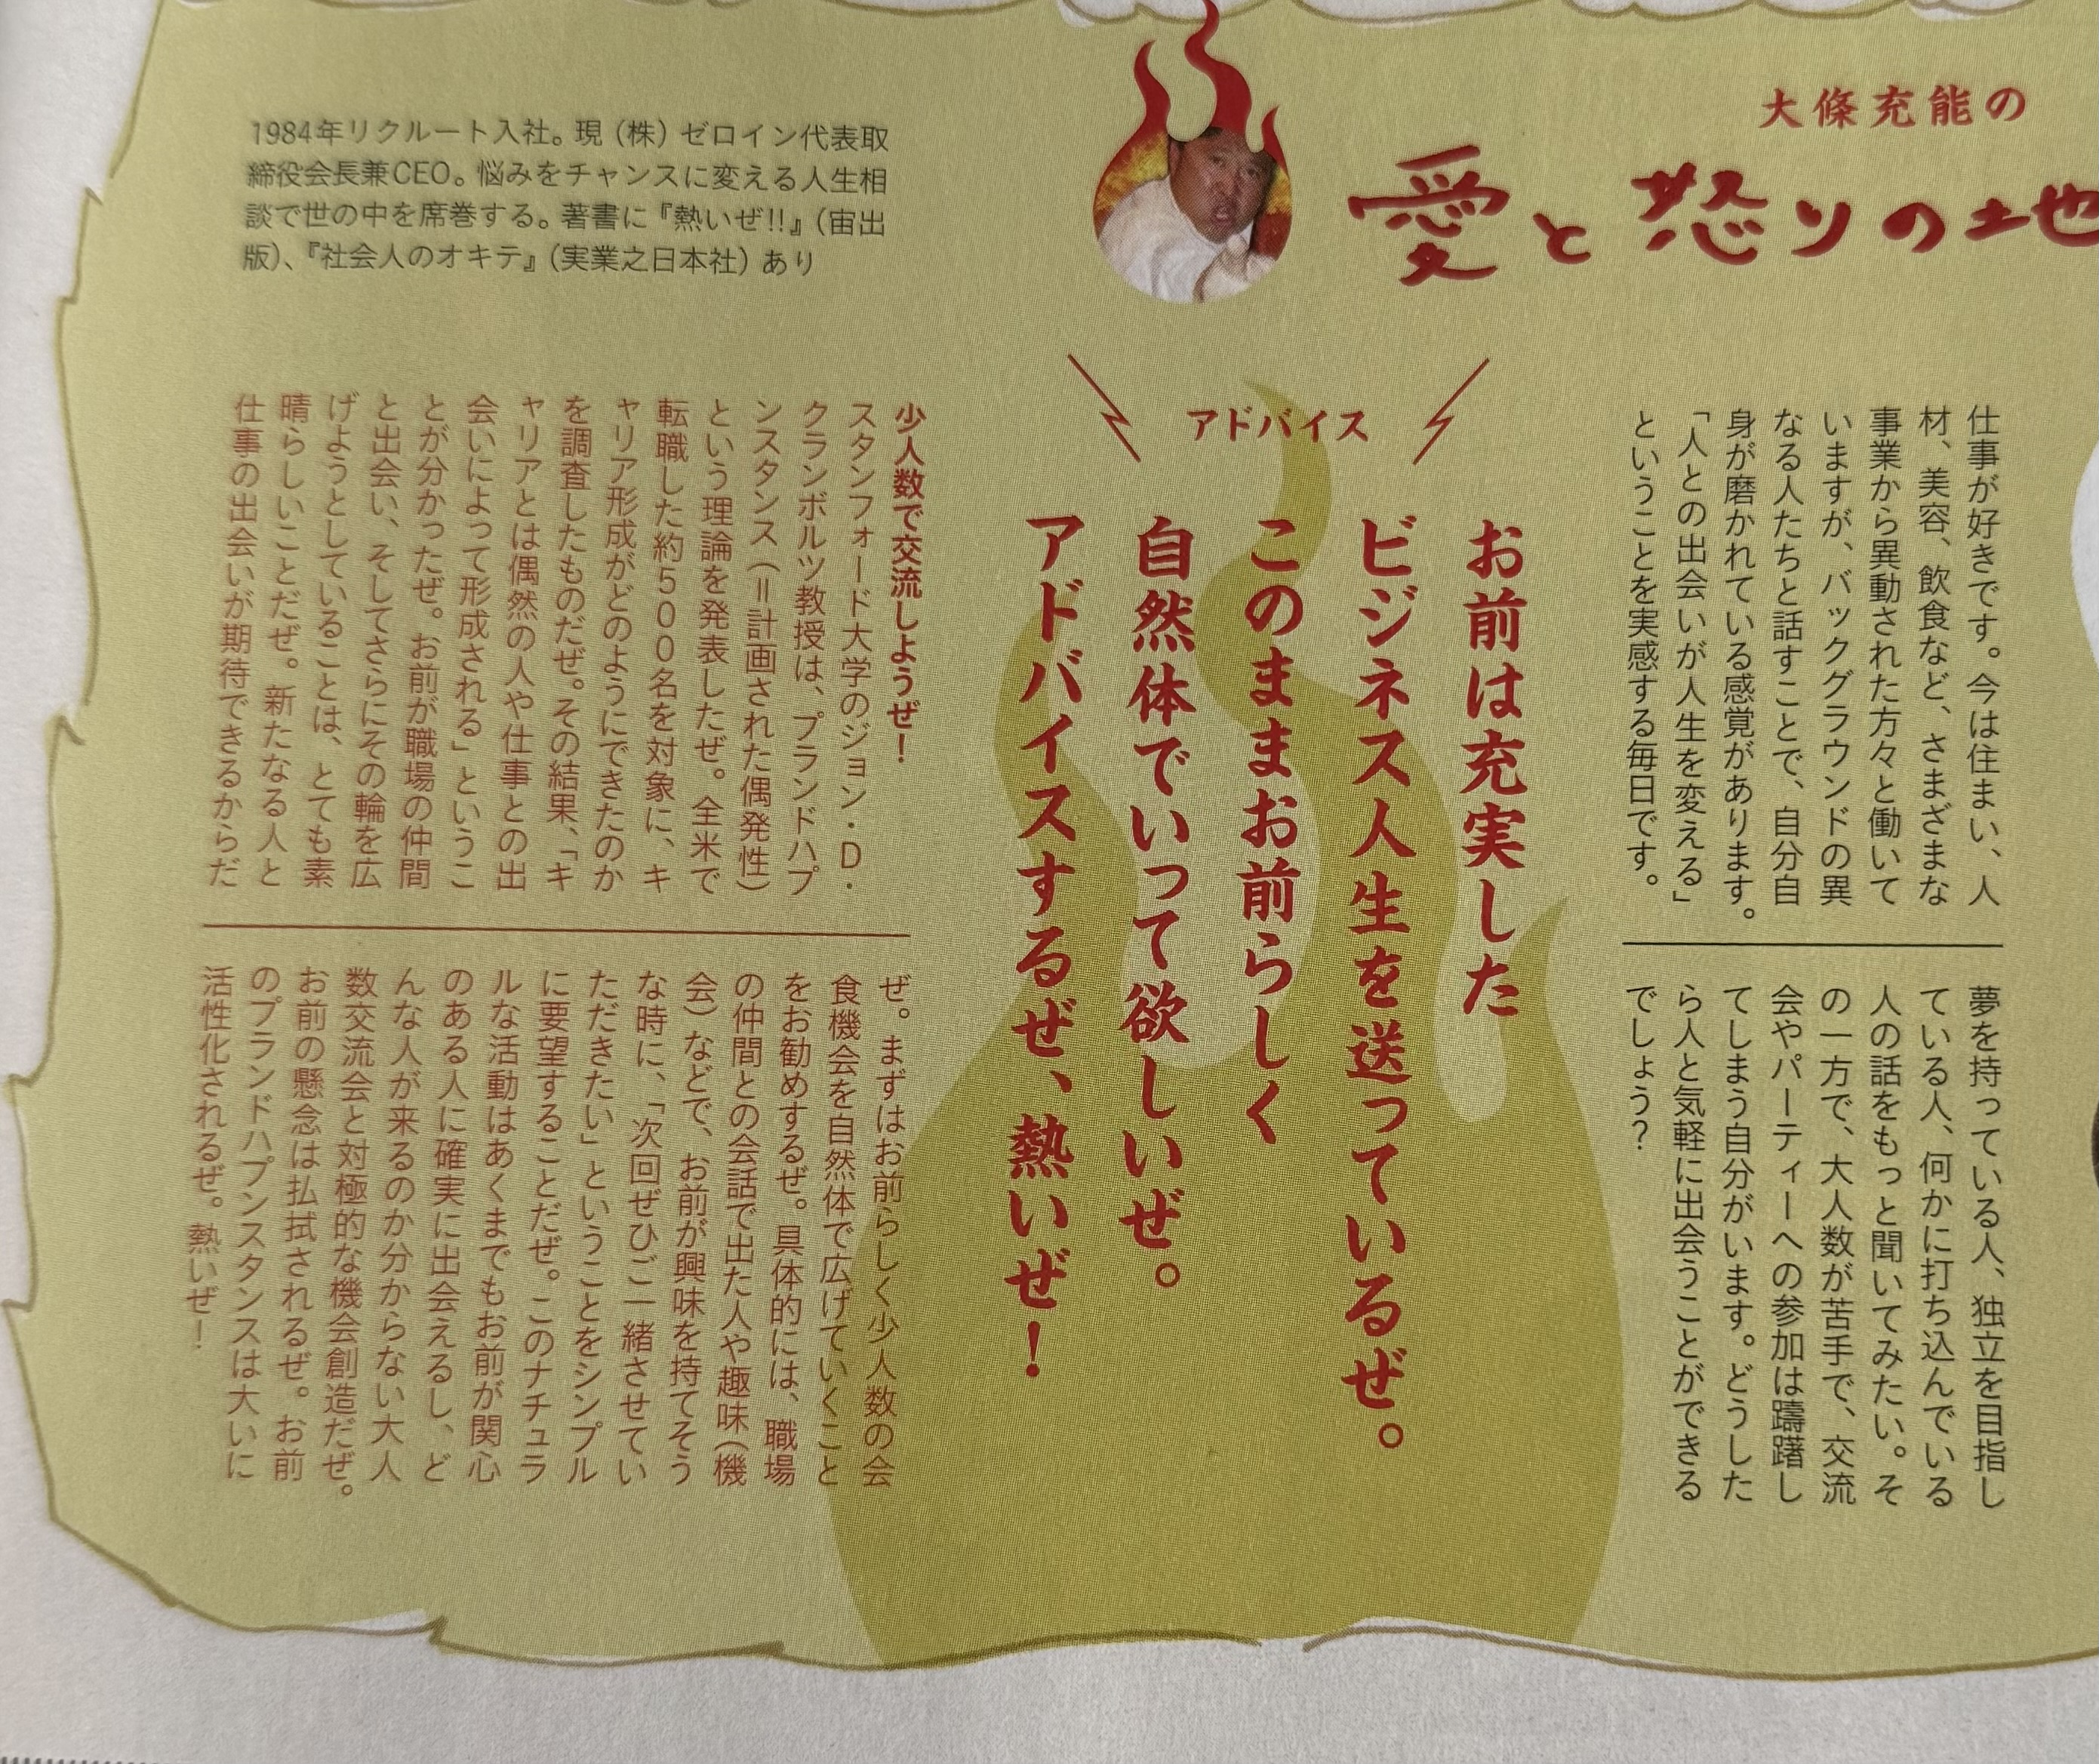 大條充能の
愛と怒りの地
1984年リクルート入社。現（株）ゼロイン代表取
締役会長兼CEO。悩みをチャンスに変える人生相
談で世の中を席巻する。著書に『熱いぜ!!』（宙出
版）、『社会人のオキテ』（実業之日本社）あり
仕事が好きです。今は住まい、人
材、美容、飲食など、さまざまな
事業から異動された方々と働いて
いますが、バックグラウンドの異
なる人たちと話すことで、自分自
身が磨かれている感覚があります。
「人との出会いが人生を変える」
ということを実感する毎日です。
夢を持っている人、独立を目指し
ている人、何かに打ち込んでいる
人の話をもっと聞いてみたい。そ
の一方で、大人数が苦手で、交流
会やパーティーへの参加は躊躇し
てしまう自分がいます。どうした
ら人と気軽に出会うことができる
でしょう？
アドバイス
お前は充実した
ビジネス人生を送っているぜ。
このままお前らしく
自然体でいって欲しいぜ。
アドバイスするぜ、熱いぜ！
少人数で交流しようぜ！
スタンフォード大学のジョン・D・
クランボルツ教授は、プランドハプ
ンスタンス（＝計画された偶発性）
という理論を発表したぜ。全米で
転職した約500名を対象に、キ
ャリア形成がどのようにできたのか
を調査したものだぜ。その結果、「キ
ャリアとは偶然の人や仕事との出
会いによって形成される」というこ
とが分かったぜ。お前が職場の仲間
と出会い、そしてさらにその輪を広
げようとしていることは、とても素
晴らしいことだぜ。新たなる人と
仕事の出会いが期待できるからだ
ぜ。まずはお前らしく少人数の会
食機会を自然体で広げていくこと
をお勧めするぜ。具体的には、職場
の仲間との会話で出た人や趣味（機
会）などで、お前が興味を持てそう
な時に、「次回ぜひご一緒させてい
ただきたい」ということをシンプル
に要望することだぜ。このナチュラ
ルな活動はあくまでもお前が関心
のある人に確実に出会えるし、ど
んな人が来るのか分からない大人
数交流会と対極的な機会創造だぜ。
お前の懸念は払拭されるぜ。お前
のプランドハプンスタンスは大いに
活性化されるぜ。熱いぜ！